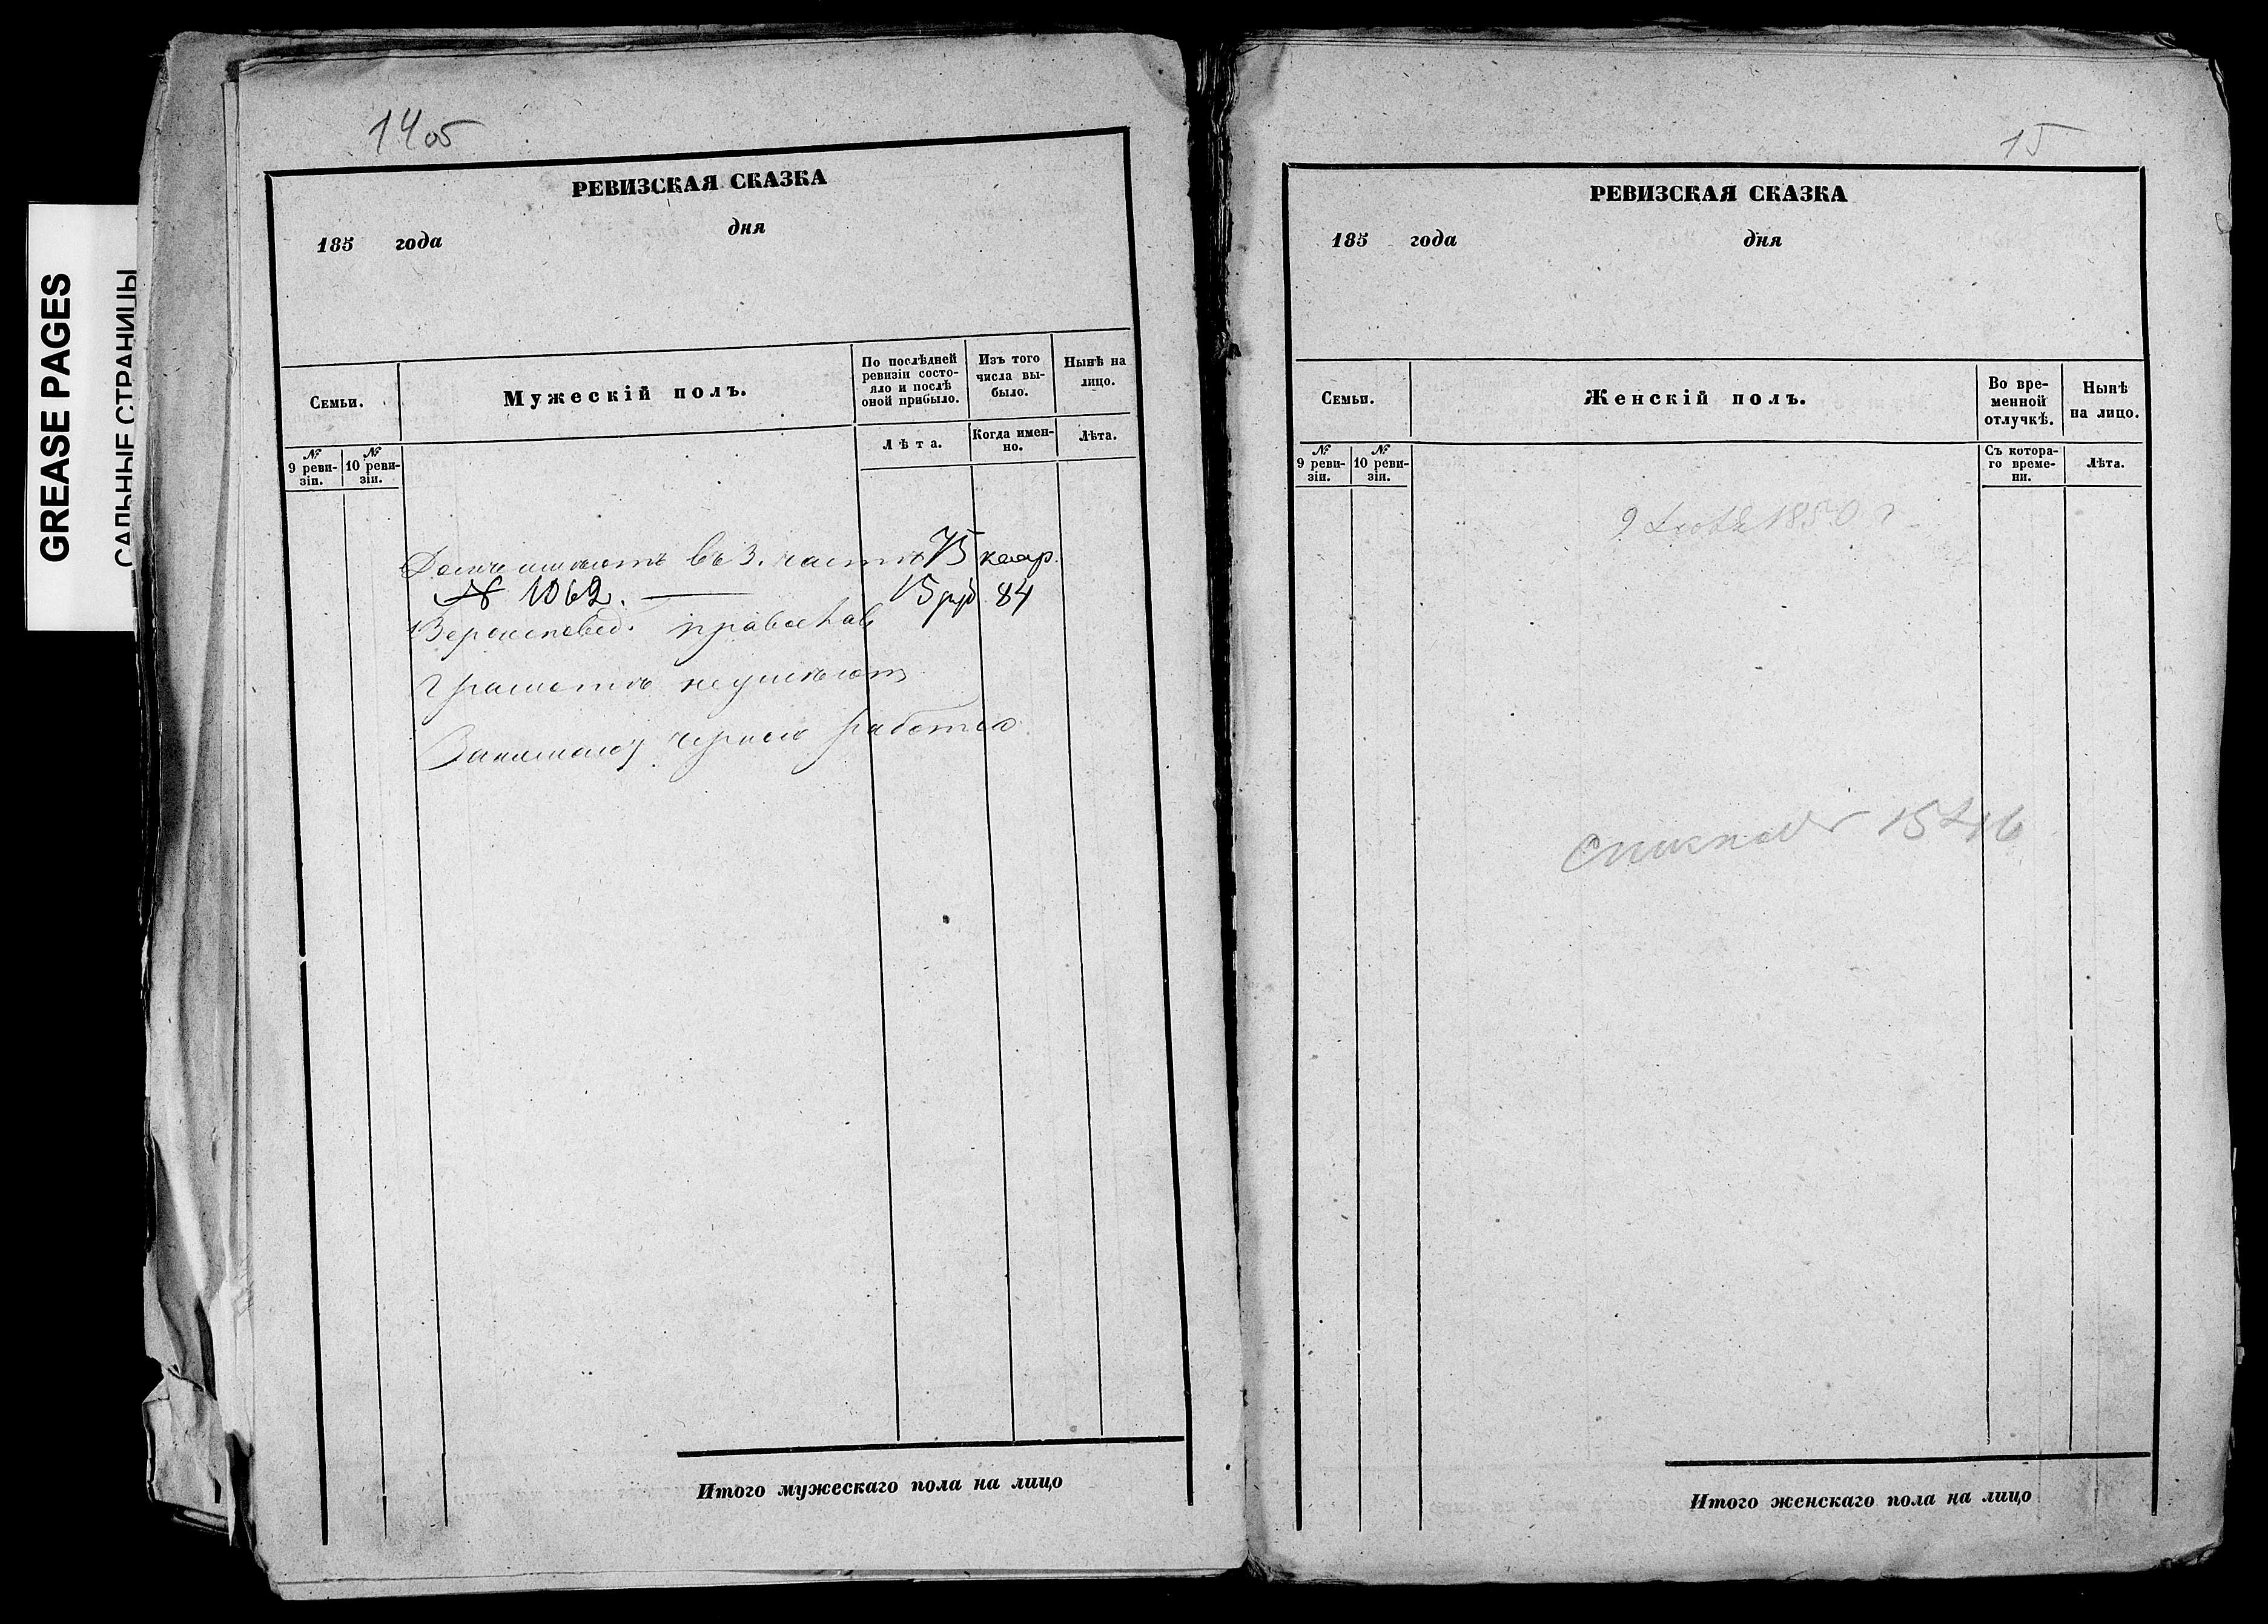 GREASE PAGES
САЛЬНЫЕ СТРАНИЦЫ
14об
РЕВИЗСКАЯ СКАЗКА
185 года дня
Семьи.
Мужескій полъ.
По послѣдней ревизіи состо-
яло и послѣ
оной прибыло.
Изъ того
числа вы-
было.
Нынѣ на
лицо.
№
9 реви-
зіи.
№
10 реви-
зіи.
Лѣта.
Когда имен-
но.
Лѣта.
въ 3. части 75 квар.
№ 1062. 15 84
Вероисповед. православ
Грамотѣ неумѣютъ
черною работою
Итого мужескаго пола на лицо
15
РЕВИЗСКАЯ СКАЗКА
185 года дня
Семьи.
Женскій полъ.
Во вре-
менной
отлучкѣ.
Нынѣ
на лицо.
№
9 реви-
зіи.
№
10 реви-
зіи.
Съ котора-
го време-
ни.
Лѣта.
1850 г
15
Итого женскаго пола на лицо